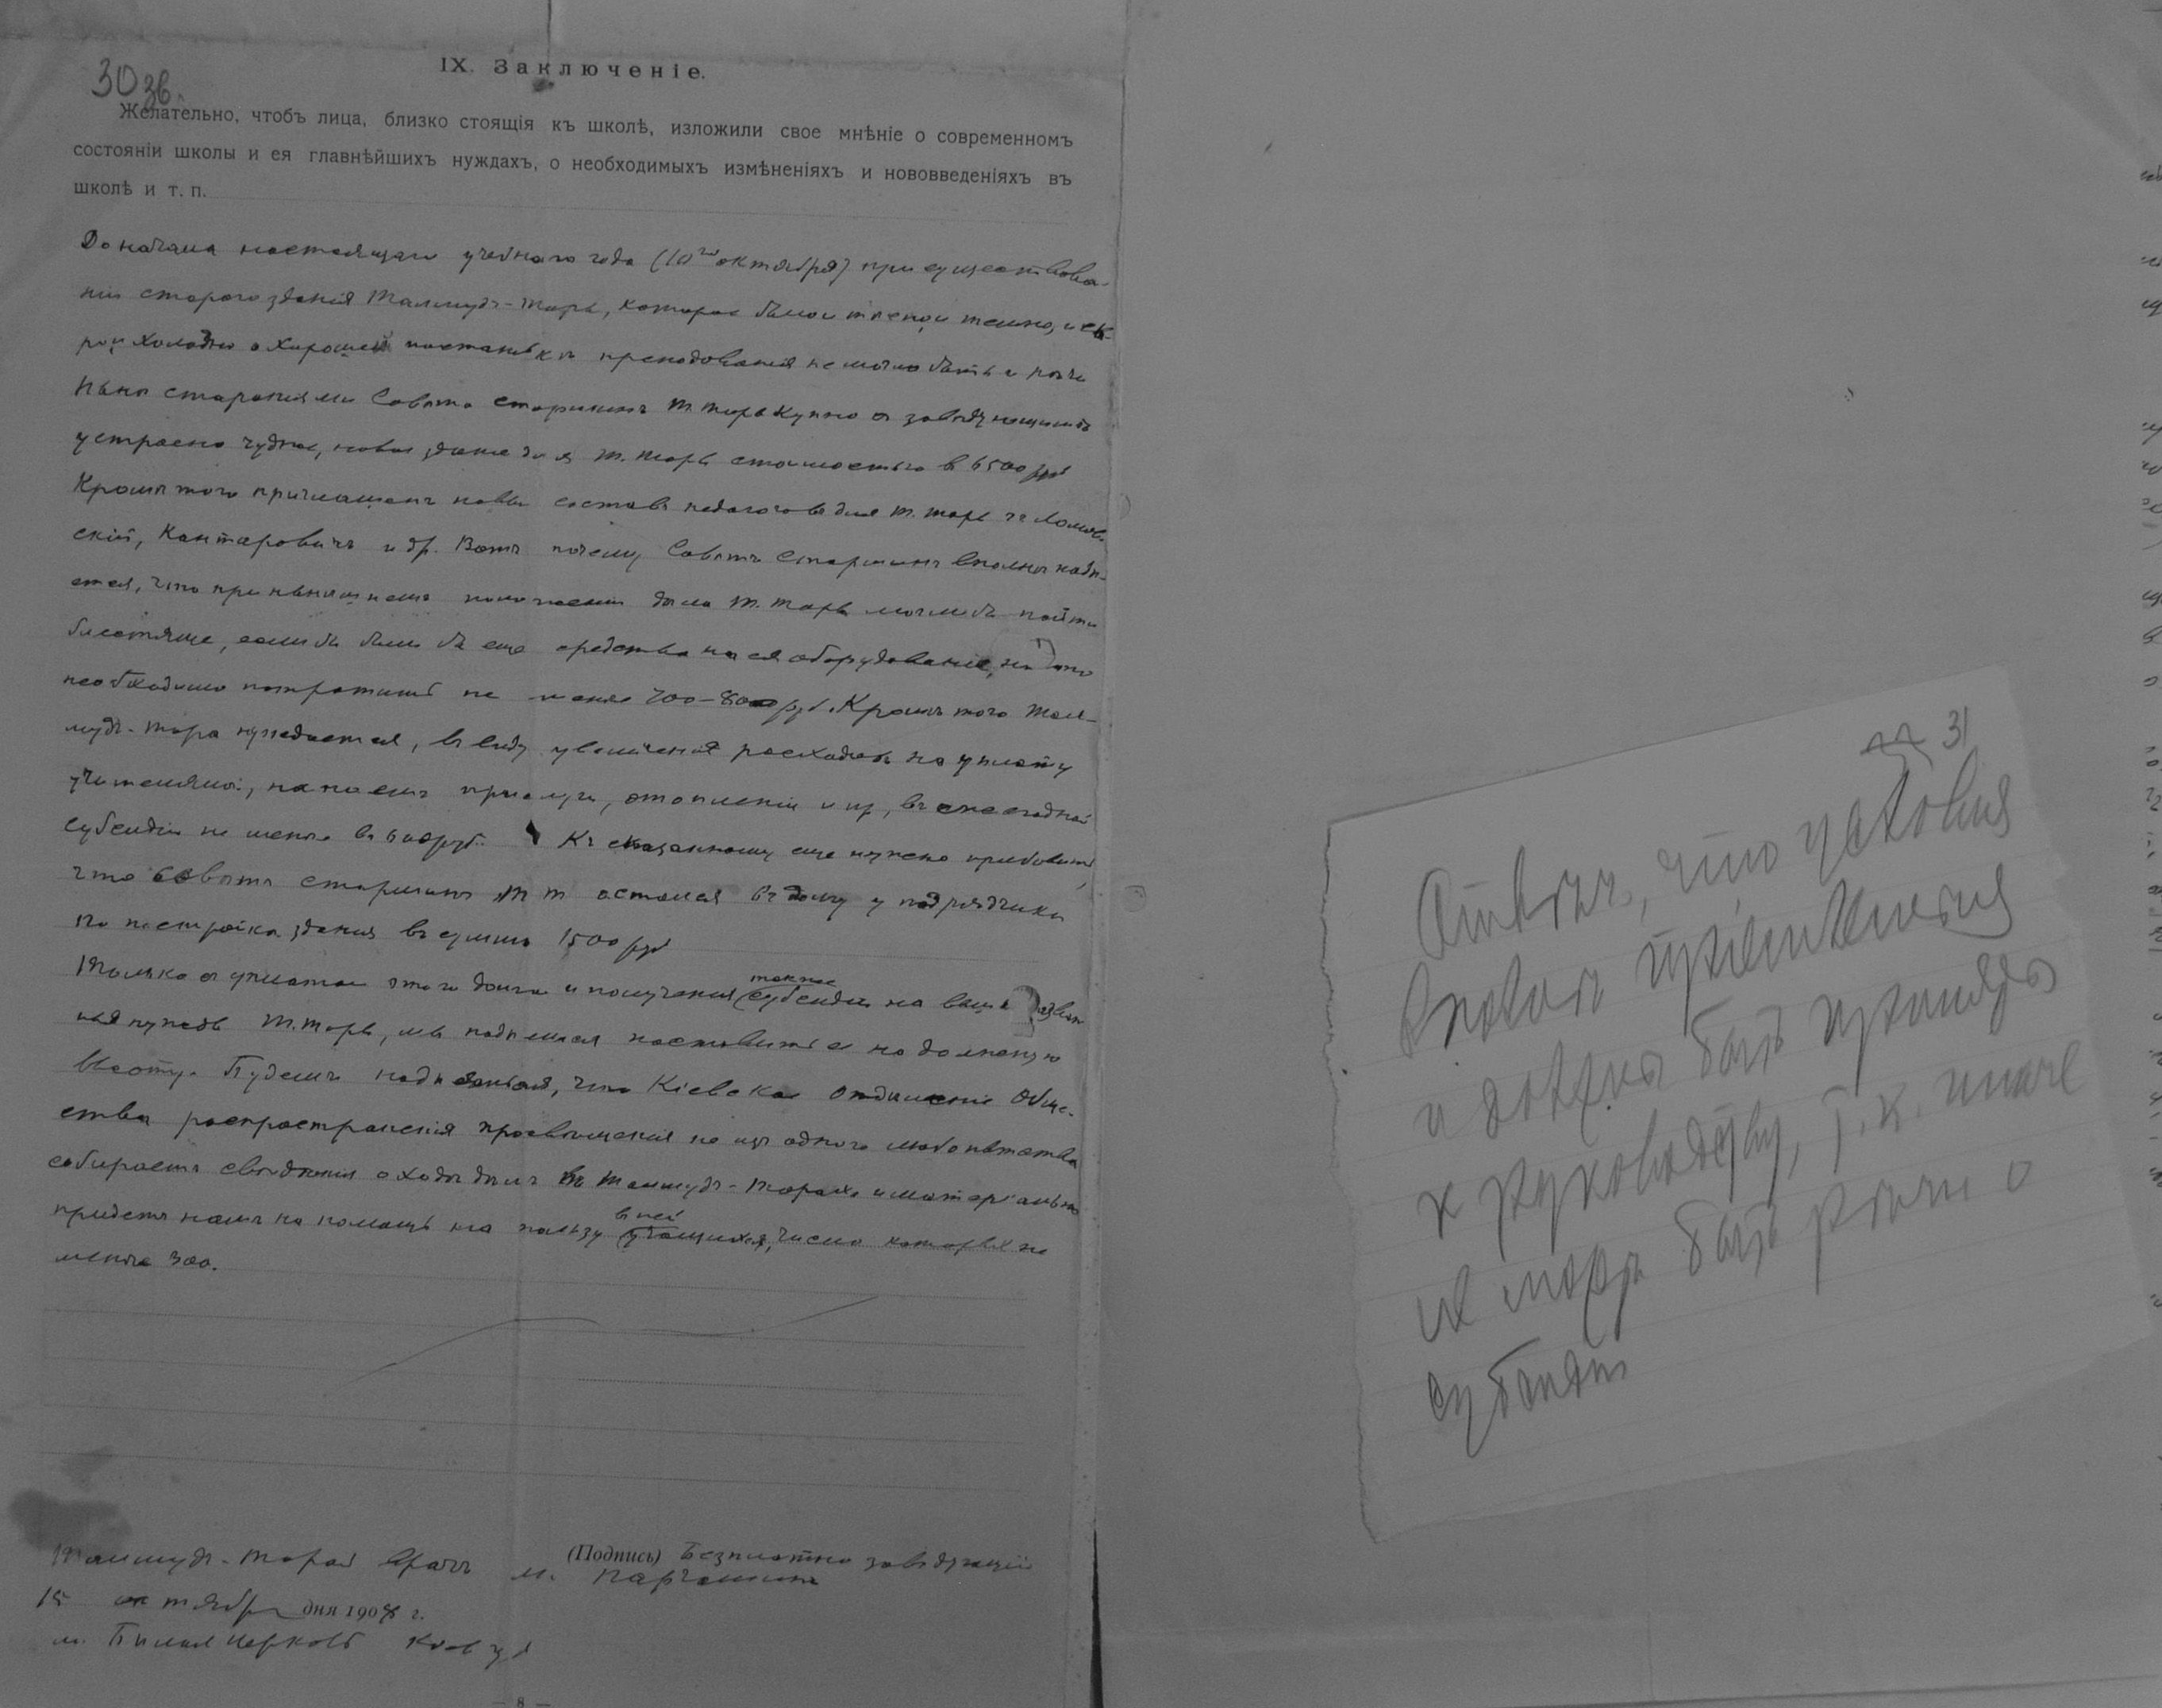 30 зв.
IX. Заключеніе.
Желательно, чтобъ лица, близко стоящія къ школѣ, изложили свое мнѣніе о современномъ
состояніи школы и ея главнѣйшихъ нуждахъ, о необходимыхъ измѣненіяхъ и нововведеніяхъ въ
школѣ и т. п.
До начала настоящаго учебнаго года (10го октября) при существова-
ніи стараго зданія Талмудъ-Торы, которое было и тѣсно и темно, и
холодно о хорошей постановкѣ преподаванія не могло быть и рѣчи
Нынѣ стараніями Совѣта старшинъ Т. Торы купно съ завѣдующимъ
устроено чудное, новое зданіе для Т. Торы стоимостью в 6500 руб
Кромѣ того приглашенъ новый составъ педагоговъ для Т. Торы гг
скій, Кантаровичъ и др. Вотъ почему Совѣтъ Старшинъ вполнѣ надѣ-
ется, что при нынѣшнемъ положеніи дѣла Т. Торы могли бы пойти
блестяще, если бы были бы еще средства на ея оборудованіе, на что
необходимо потратить не менѣе 700-800 руб. Кромѣ того Тал-
мудъ-Тора нуждается, въ виду увеличенія расходовъ на уплату
учителямъ, наемъ прислуги, отопленіи и пр, въ ежегодной
субсидіи не менѣе въ 600 руб. Къ сказанному еще нужно прибавить,
что Совѣтъ старшинъ Т Т остался въ долгу у подрядчика
по постройкѣ зданія въ суммѣ 1500 руб
Только съ уплатою этого долга и полученія также субсидіи на выше
нужды Т. Торы, мы надѣемся поставить ее на должную
высоту. Будемъ надѣяться, что Кіевское Отдѣленіе Обще-
ства распространенія просвѣщенія не изъ одного любопытства
собираетъ свѣдѣнія о ходѣ дѣлъ въ Талмудъ-Торахъ и матеріально
придетъ намъ на помощь на пользу в ней учащихся, число которыхъ не
менѣе 300.
Талмудъ-Торой врачъ (Подпись) Безплатно завѣдующій
м.
15 октября дня 1908 г.
м. Бѣлая Церковь Кіев губ
— 8 —
31
Отвѣтъ, что условія
вполнѣ
и должны быть приняты
к руководству, т.к. иначе
не можетъ быть рѣчи о
субсидіи